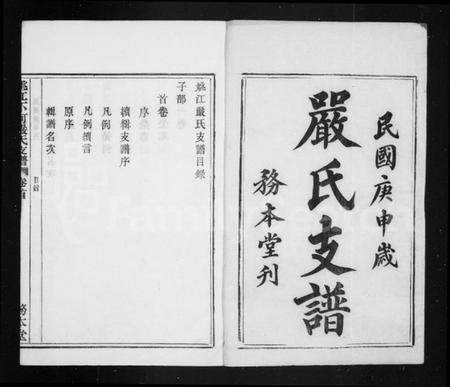 民國庚申歲
嚴氏支譜
務本堂刊
姚江嚴氏支譜目錄
子部
首卷
序
續輯支譜序
凡例
凡例續言
原序
輯譜名次
目錄
務本堂